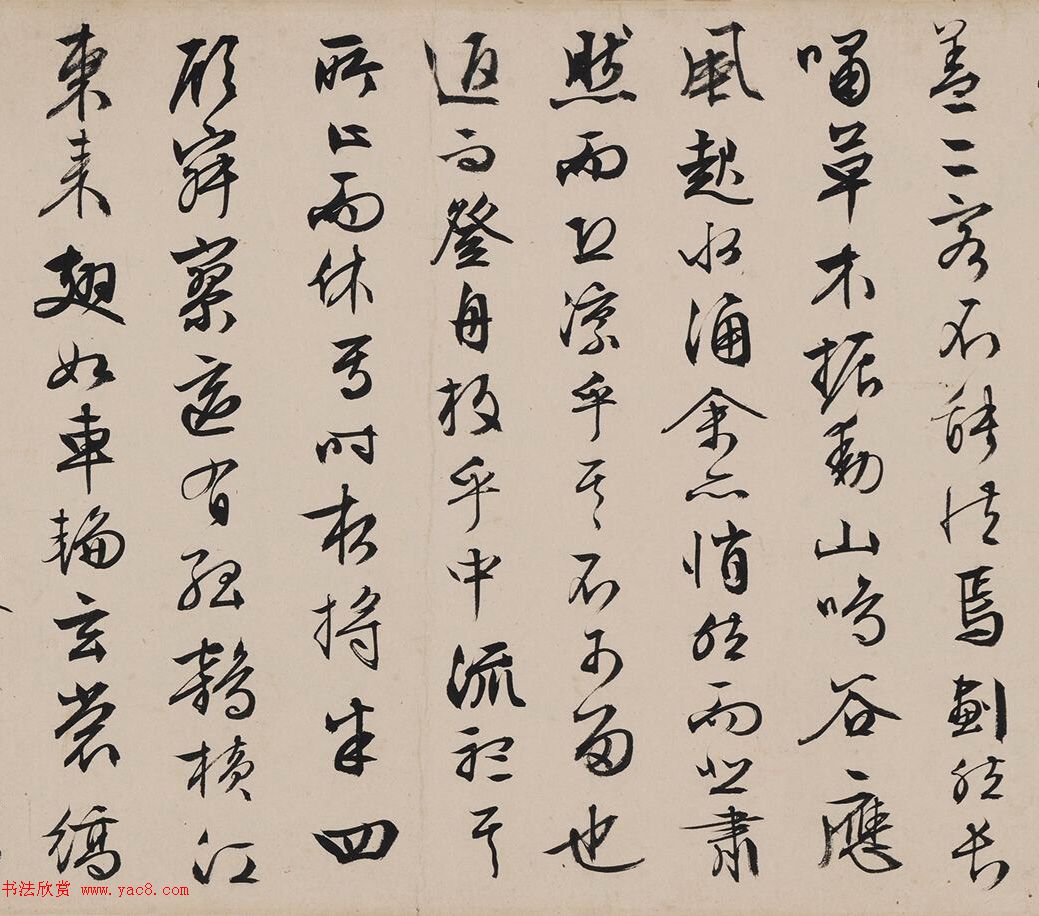 蓋二客不能從焉劃然長
嘯草木振動山鳴谷應
風起水涌余亦悄然而悲肅
然而恐凜乎其不可留也
返而登舟放乎中流聽其
所止而休焉時夜將半四
顧寂寥適有孤鶴橫江
東來翅如車輪玄裳縞
书法欣赏 www.yac8.com